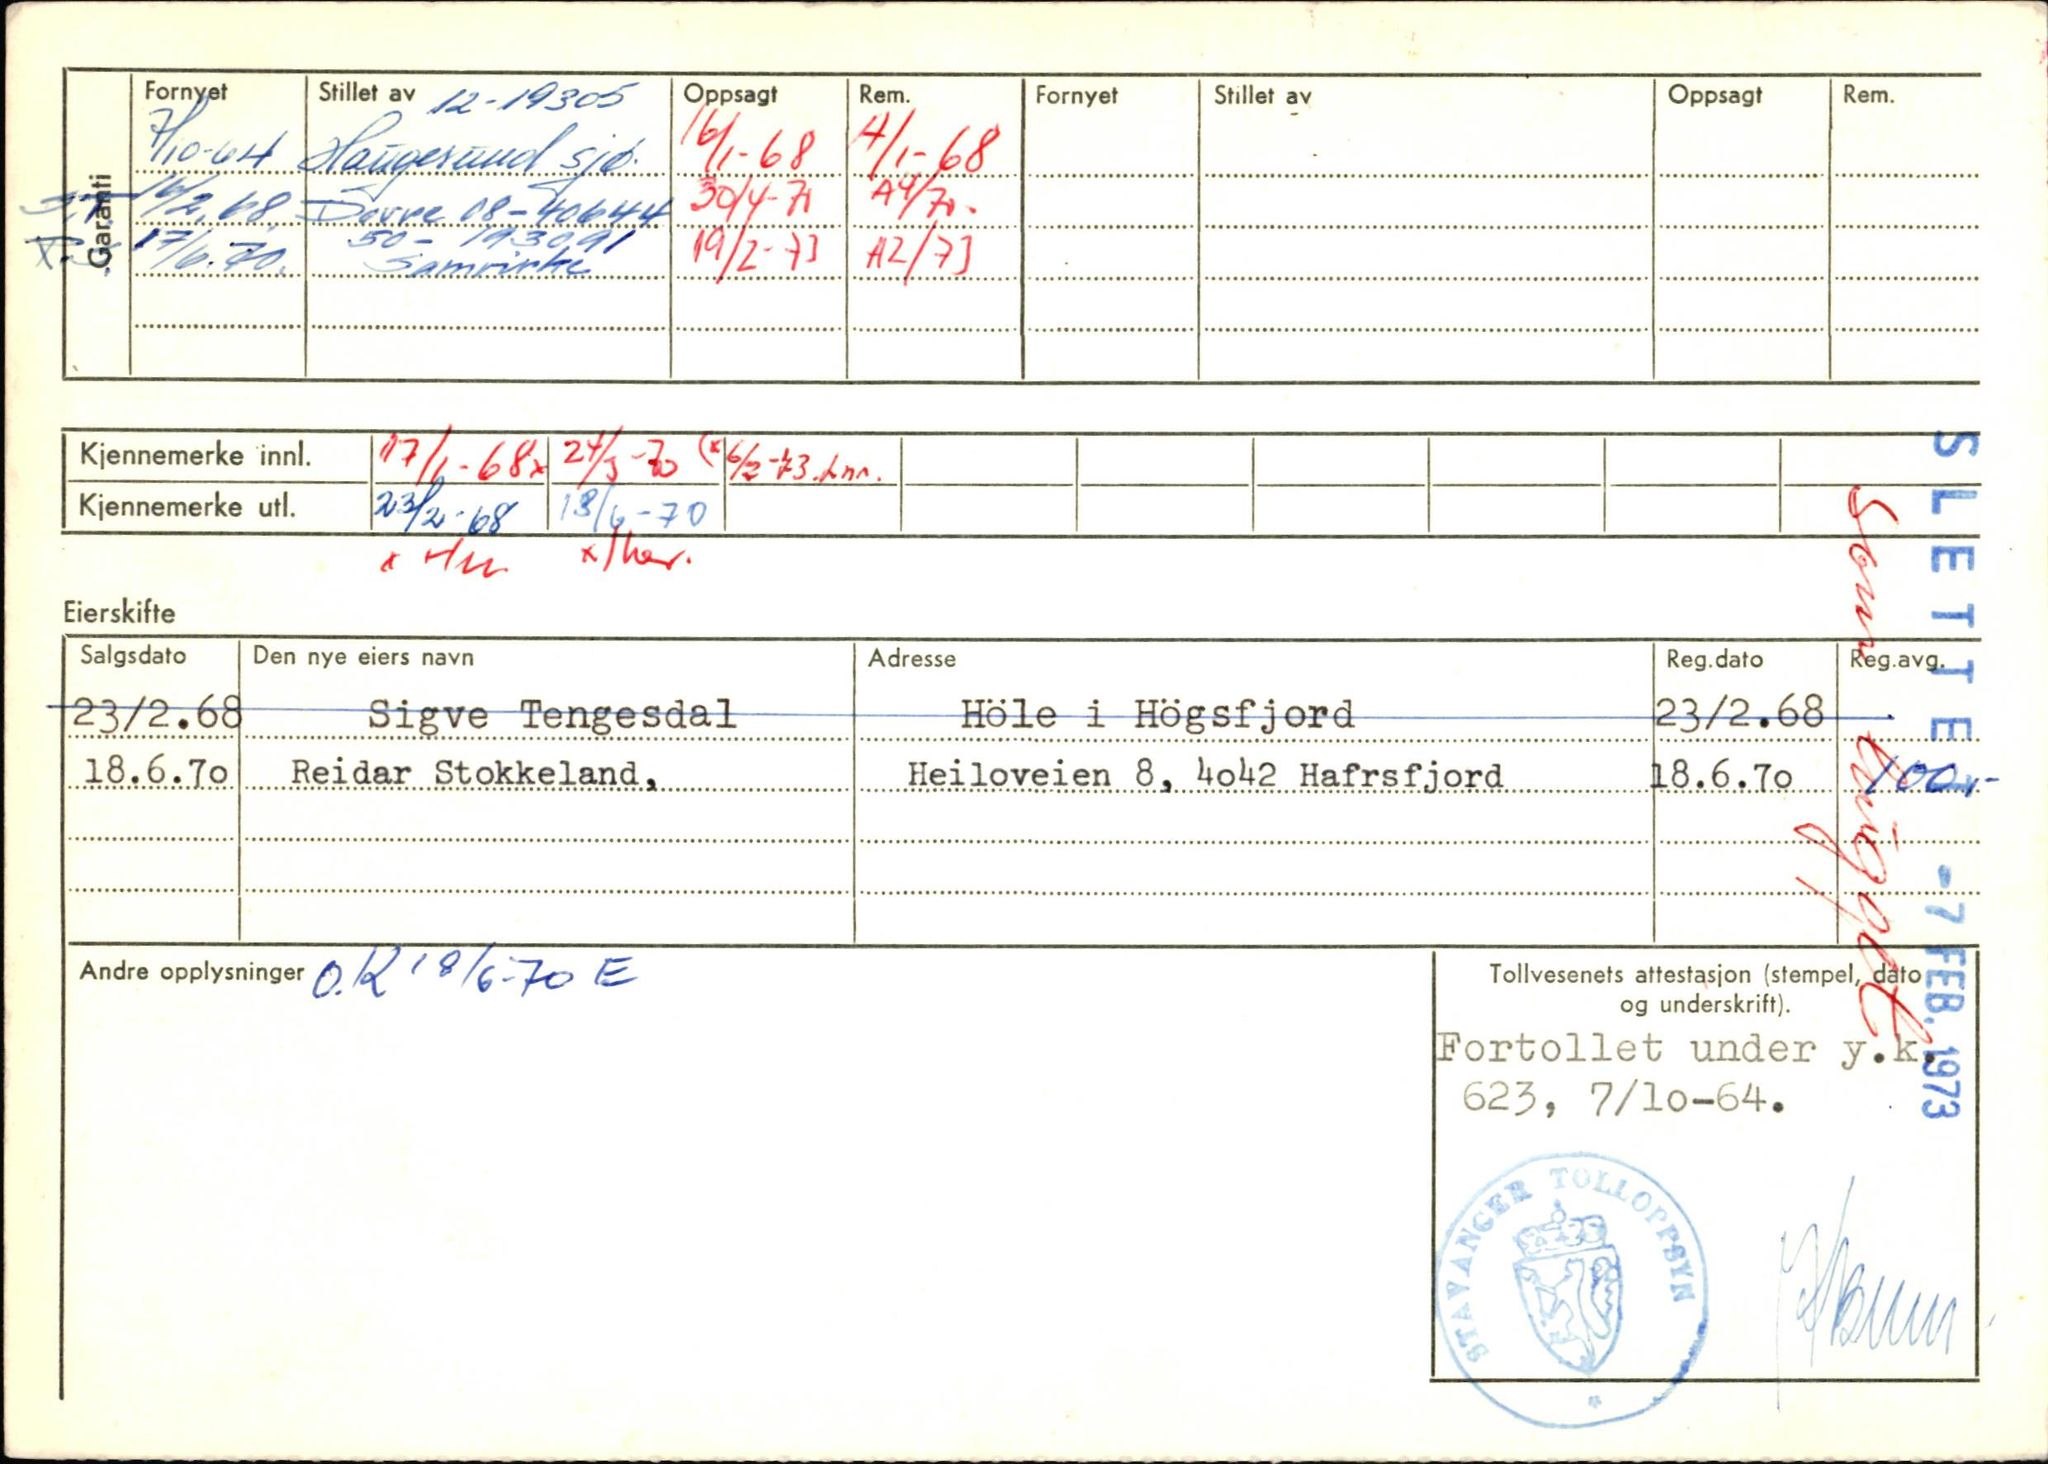 Garanti
Fornyet Stillet av Oppsagt Rem. Fornyet Stillet av Oppsagt Rem.
12-19305
7/10-64 Haugesund sjø. 16/1-68 4/1-68
16/2.68 Dovre 08-40644 30/4-71 A4/71.
17/6.70. 50-193091 19/2-73 A2/73
Samvirke
Kjennemerke innl. 17/1-68x 24/3-70 (x 6/2-73.
Kjennemerke utl. 23/2-68 18/6-70
Eierskifte
Salgsdato Den nye eiers navn Adresse Reg.dato Reg.avg.
23/2.68 Sigve Tengesdal Höle i Högsfjord 23/2.68
18.6.7o Reidar Stokkeland, Heiloveien 8, 4o42 Hafrsfjord 18.6.7o 100,-
Andre opplysninger O.K 18/6-70 E
Tollvesenets attestasjon (stempel, dato
og underskrift).
Fortollet under y.k.
623, 7/lo-64.
STAVANGER TOLLOPPSYN
SLETTET -7 FEB. 1973
Som